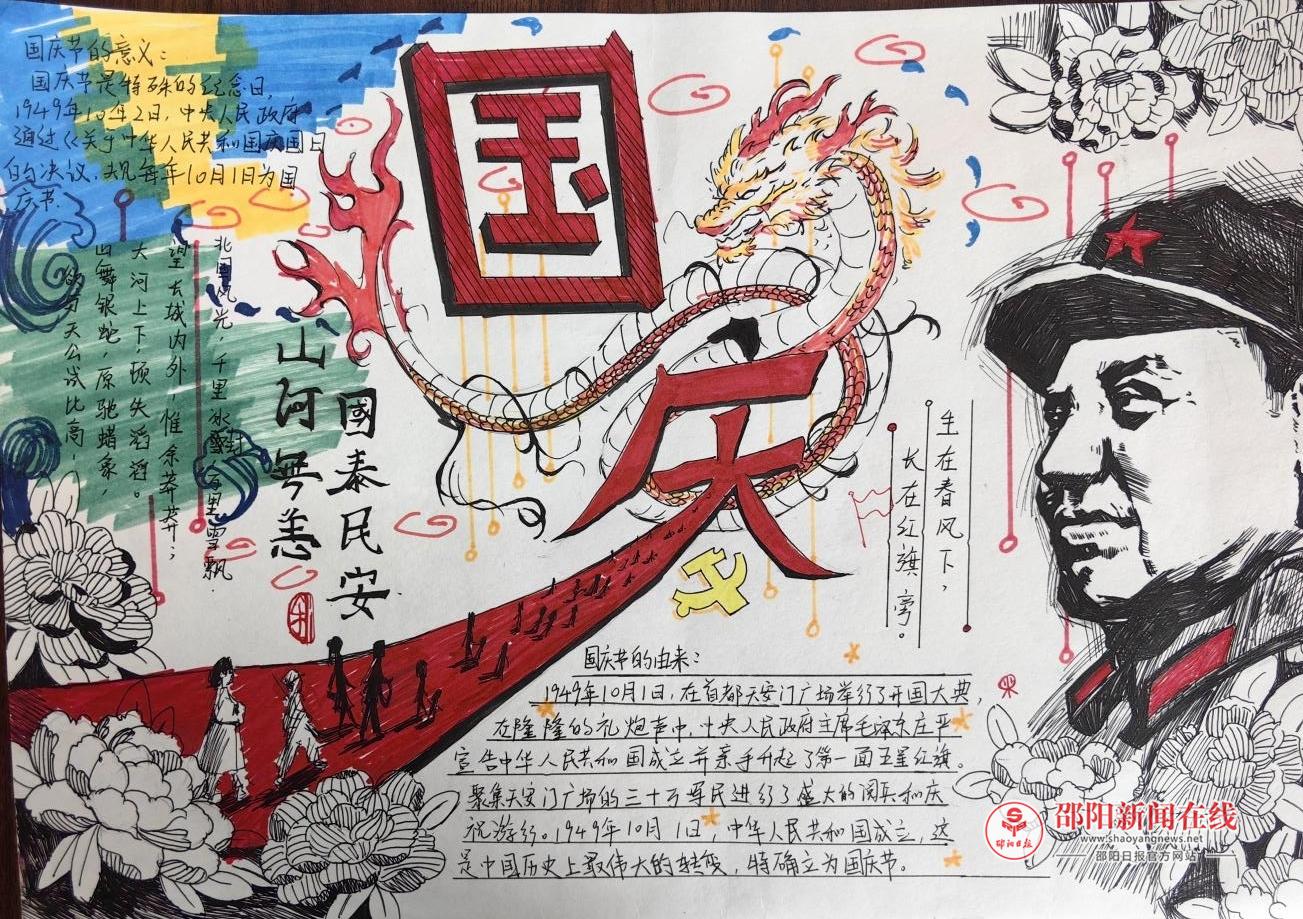 国庆节的意义：
国庆节是特殊的纪念日，
1949年10年2日，中央人民政府
通过《关于中华人民共和国庆国日
的决议，规每年10月1日为国
庆节.
国
庆
北国风光，千里冰封，万里雪飘.
望长城内外，惟余莽莽；
大河上下，顿失滔滔。
山舞银蛇，原驰蜡象，
欲与天公试比高，
國泰民安
山河无恙
生在春风下，
长在红旗旁。
国庆节的由来：
1949年10月1日，在首都天安门广场举行了开国大典，
在隆隆的礼炮声中，中央人民政府主席毛泽东庄严
宣告中华人民共和国成立并亲手升起了第一面五星红旗。
聚集天安门广场的三十万军民进行了盛大的阅兵和庆
祝游行。1949年10月1日，中华人民共和国成立，这
是中国历史上最伟大的转变，特确立为国庆节。
邵阳日报
邵阳新闻在线
www.shaoyangnews.net
邵阳日报官方网站